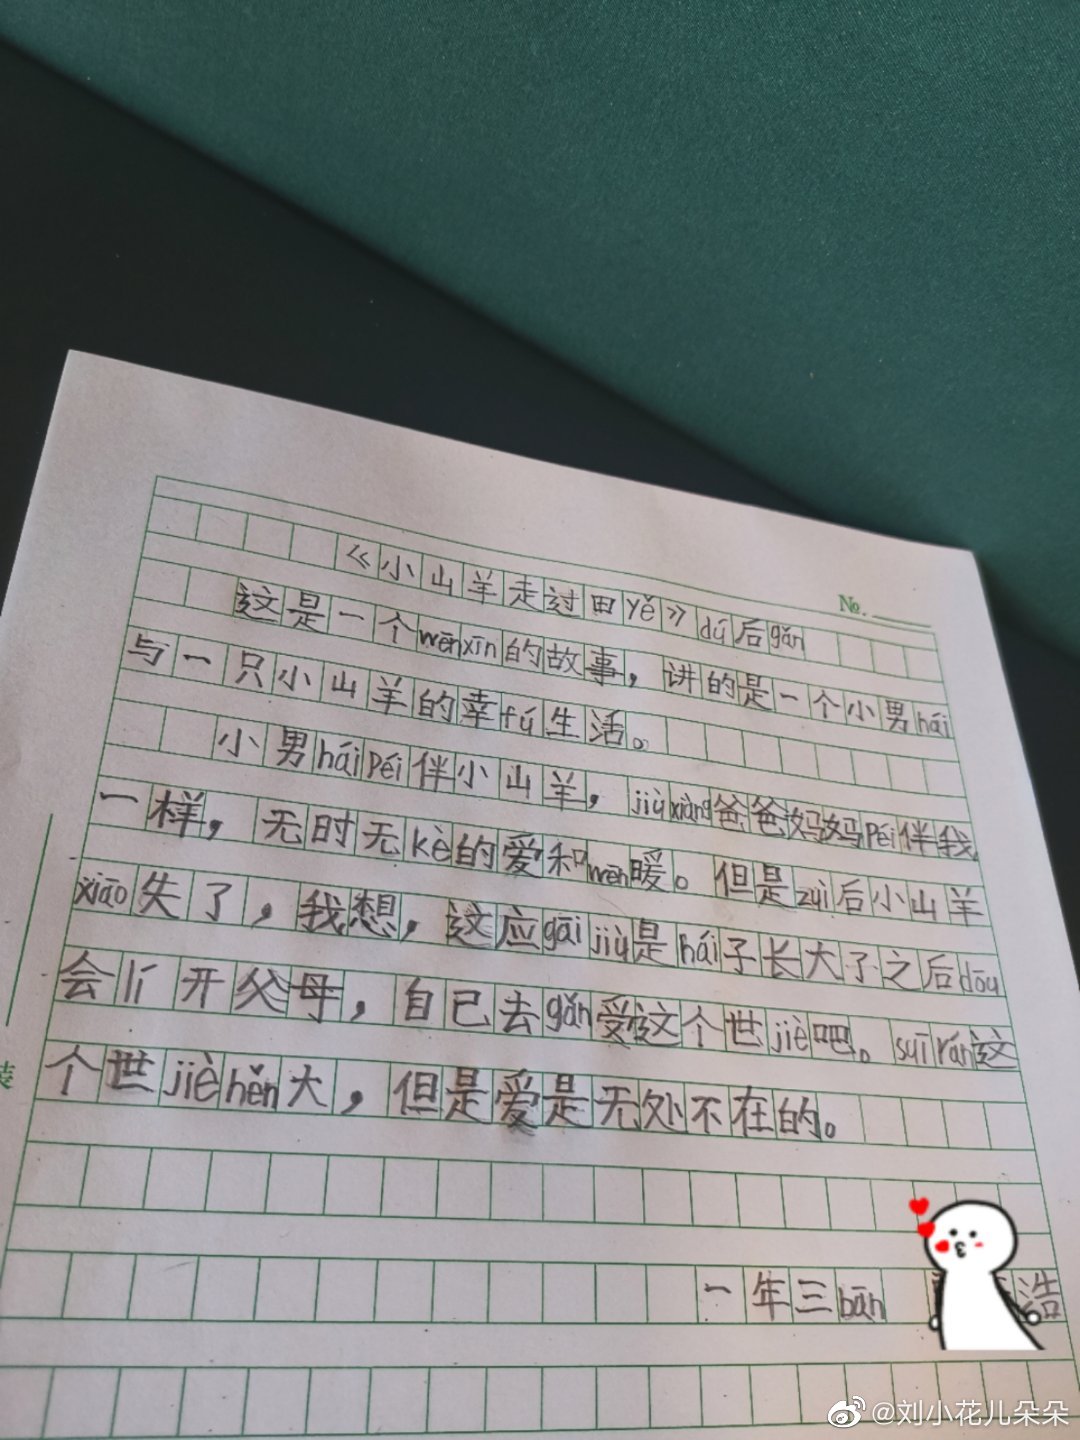 No.
《小山羊走过田yě》dú后gǎn
这是一个wēnxīn的故事，讲的是一个小男hái
与一只小山羊的幸fú生活。
小男háipéi伴小山羊，jiùxiàng爸爸妈妈péi伴我
一样，无时无kè的爱和wēn暖。但是zuì后小山羊
xiāo失了，我想，这应gāijiù是hái子长大了之后dōu
会lí开父母，自己去gǎn受这个世jiè吧。suīrán这
个世jièhěn大，但是爱是无处不在的。
一年三bān 浩
装
@刘小花儿朵朵